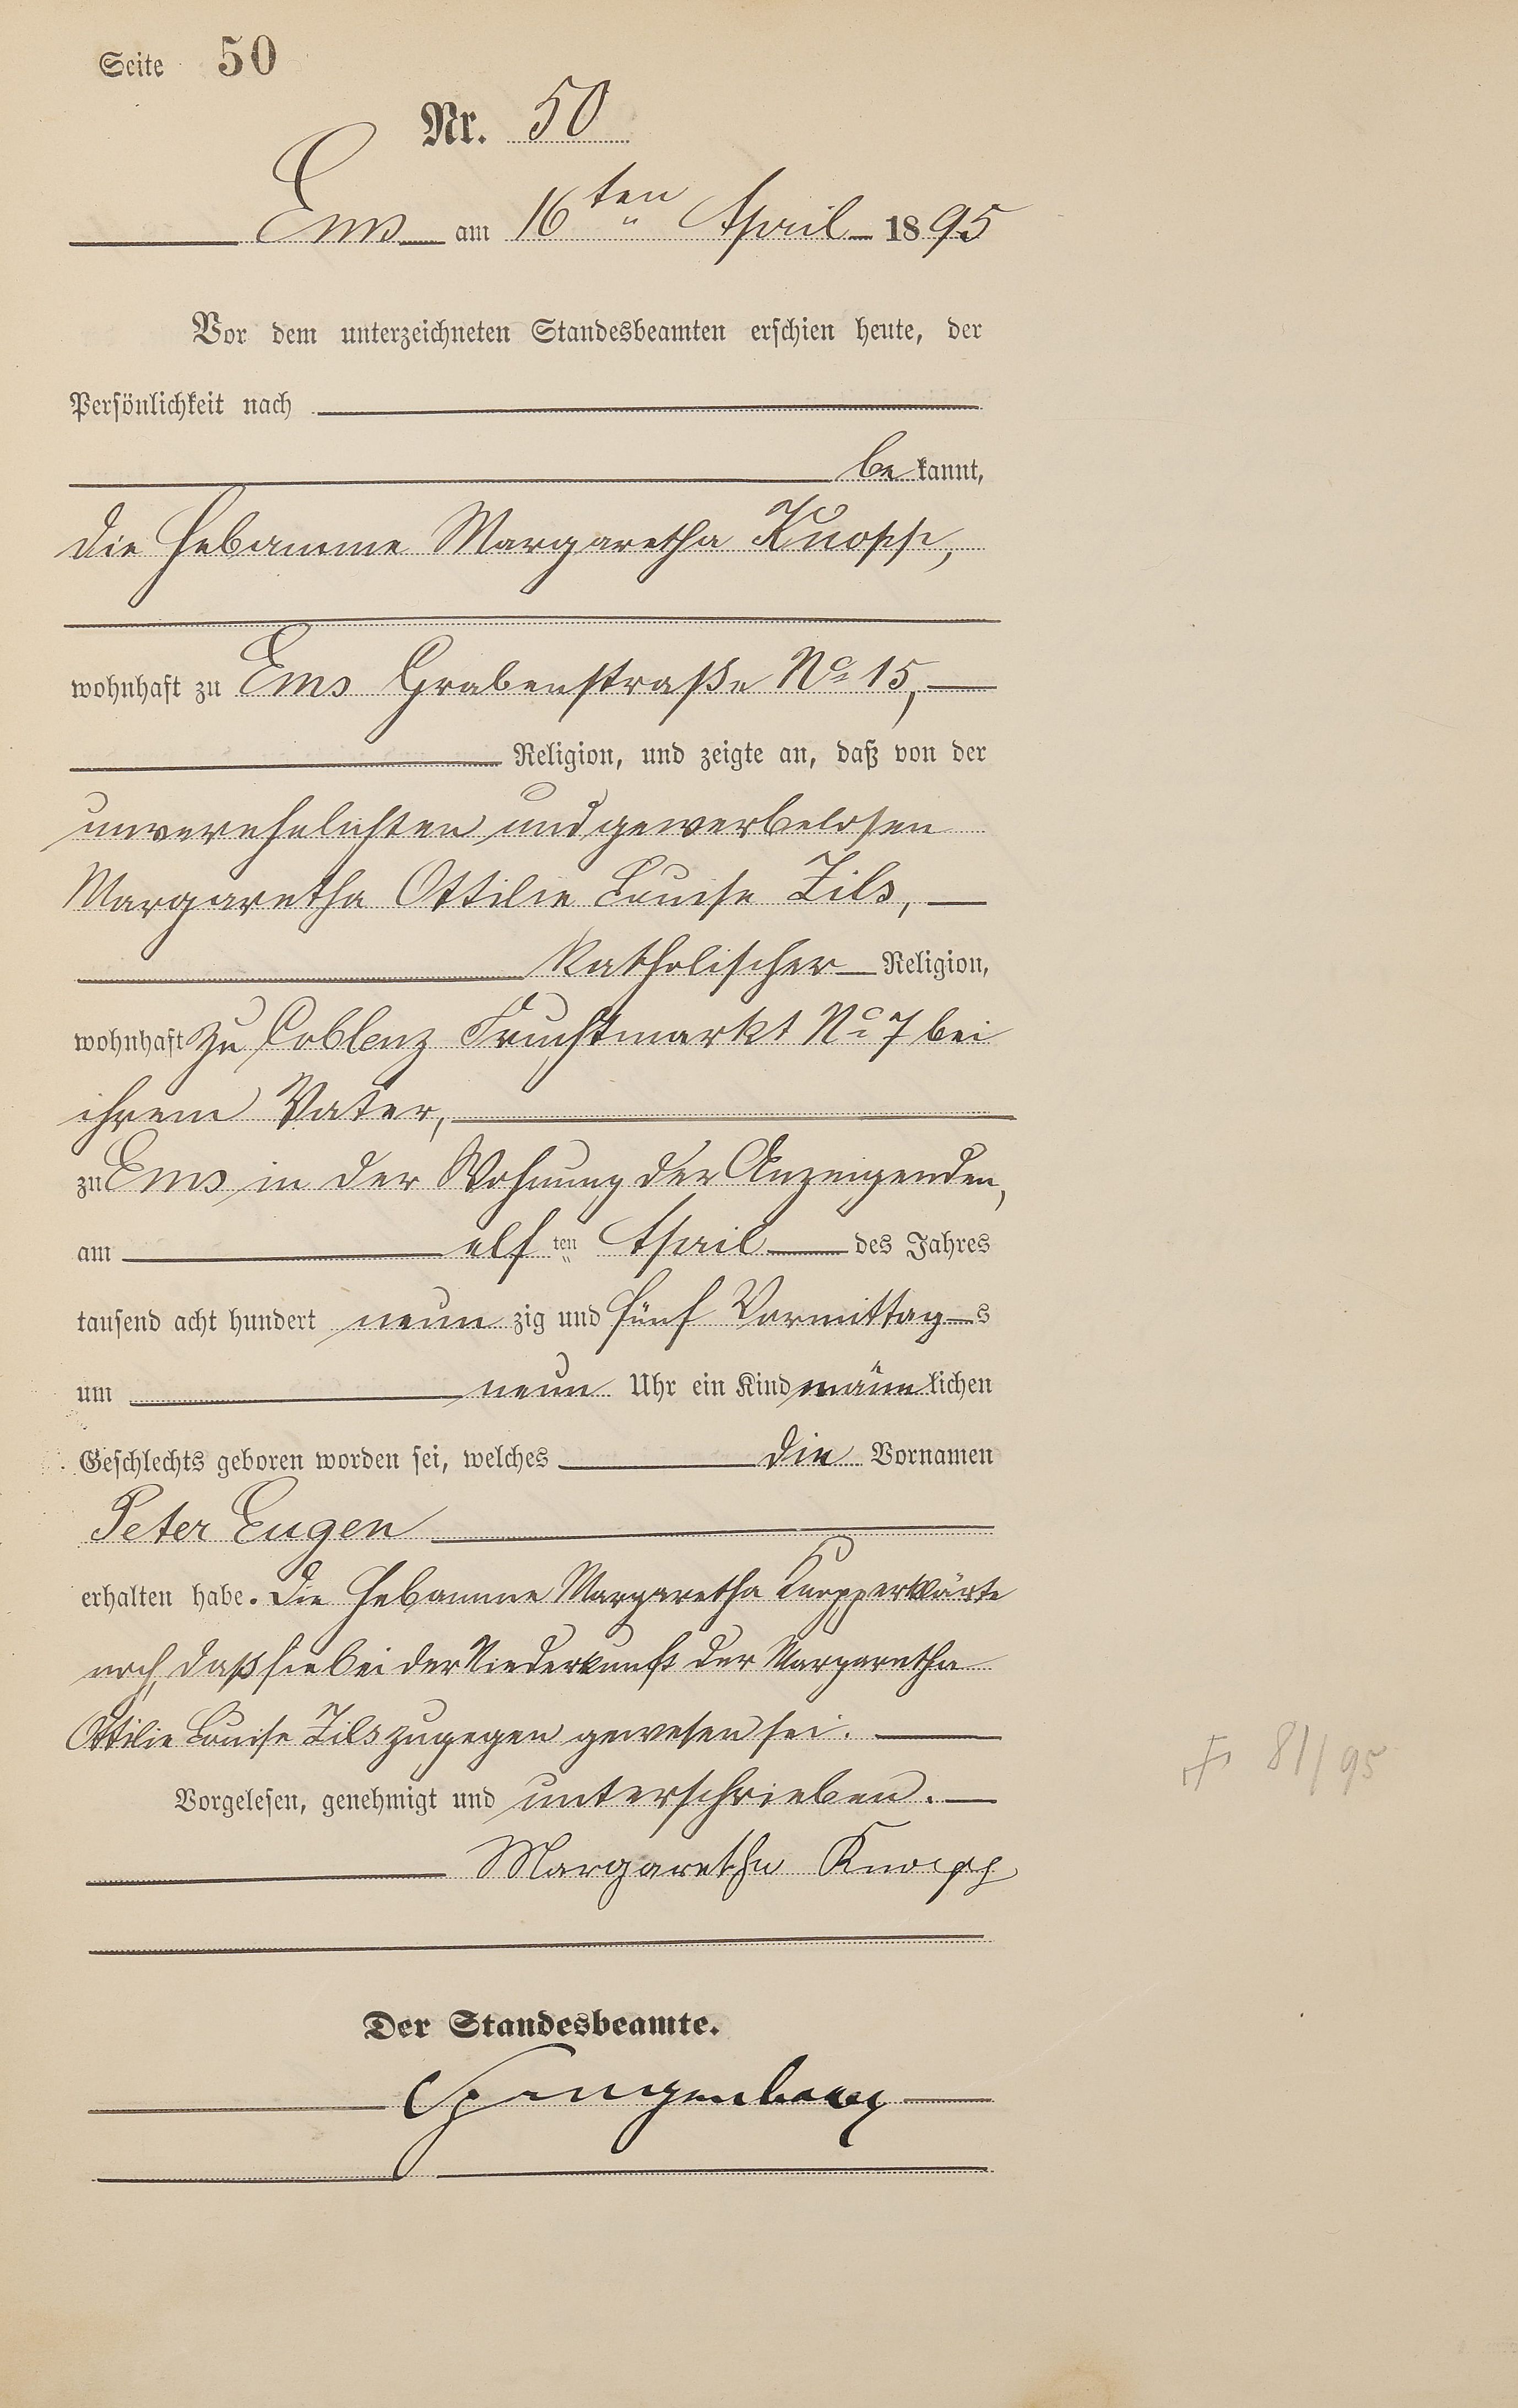 Seite 50
Nr. 50
Ems am 16ten April 1895
Vor dem unterzeichneten Standesbeamten erschien heute, der
Persönlichkeit nach
be kannt,
die Hebamme Margaretha Knopp,
wohnhaft zu Ems Grabenstraße No 15,
Religion, und zeigte an, daß von der
unverehelichten und gewerbelosen
Margaretha Ottilie Louise Zils,
katholischer Religion,
wohnhaft zu Coblenz Fruchtmarkt No 7 bei
ihrem Vater,
zu Ems in der Wohnung der Anzeigenden,
am elf ten April des Jahres
tausend acht hundert neun zig und fünf Vormittags
um neun Uhr ein Kind männlichen
Geschlechts geboren worden sei, welches die Vornamen
Peter Eugen
erhalten habe. Die Hebamme Margaretha Knopp erklärte
noch, daß sie bei der Niederkunft der Margaretha
Ottilie Louise Zils zugegen gewesen sei.
Vorgelesen, genehmigt und unterschrieben.
Margaretha Knopp
Der Standesbeamte.
† 81/95